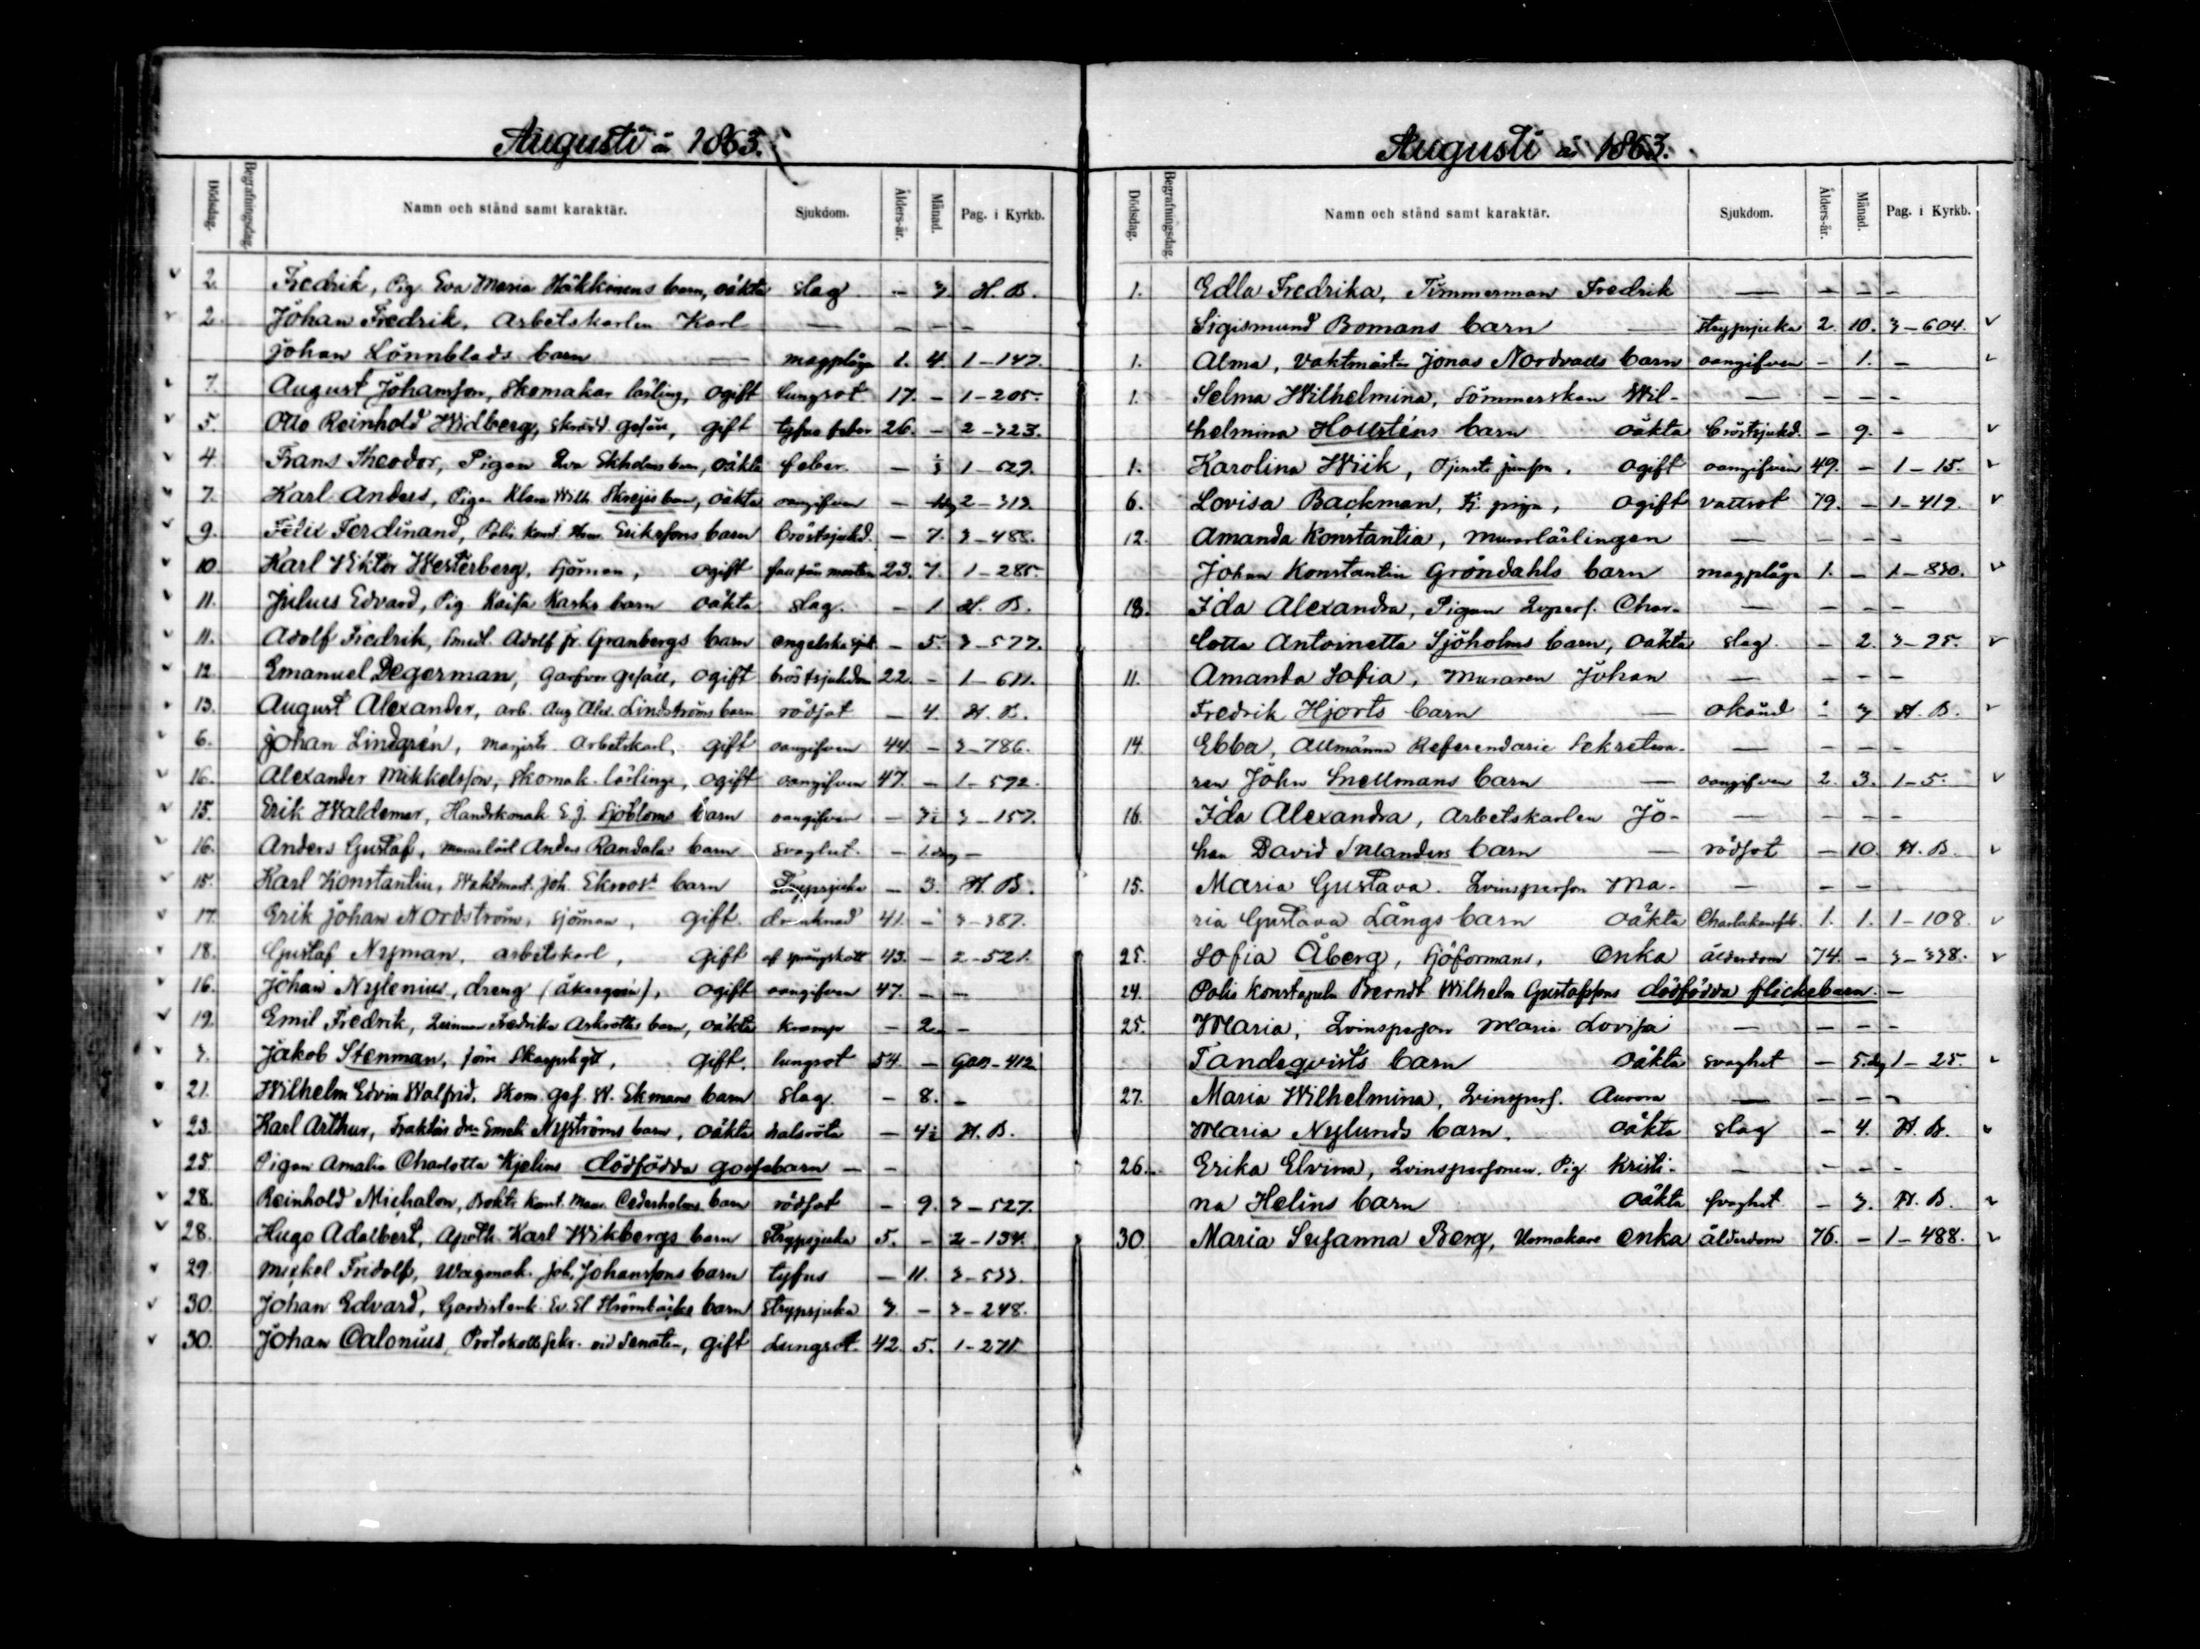 Augusti år 1863.
Dödsdag. Begrafningsdag. Namn och stånd samt karaktär. Sjukdom. Ålders-år. Månad. Pag. i Kyrkb.
2. Fredrik, Pig. Eva Maria Häkkinens barn, oäkta slag - 3. H. B.
2. Johan Fredrik, Arbetskarlen Karl — - - -
Johan Lönnblads barn — magplåga 1. 4. 1-147.
7. August Johansson, Skomakar lärling, ogift lungsot 17. - 1-205.
5. Otto Reinhold Widberg, Skrädd. gesäll, gift tyfus feber 26. - 2-323.
4. Frans Theodor, Pigan Eva Ekholms barn, oäkta feber. - 1-629.
7. Karl Anders, Pigan Klara Wilh. barn, oäkta oangifven - 2-313.
9. Felix Ferdinand, Polis konst. Erikssons barn bröstsjukd. - 7. 3-488.
10. Karl Viktor Westerberg, Sjöman, ogift fall från masten 23. 7. 1-285.
11. Julius Edvard, Pig. Kaisa barn oäkta slag. - 1 H. B.
11. Adolf Fredrik, Smed. Adolf Fr. Granbergs barn engelska sjuk - 5. 3-577.
12. Emanuel Degerman, Garfvar gesäll, ogift bröstsjukdom 22. - 1-611.
13. August Alexander, arb. Aug. Alex. Lindströms barn rödsot - 4. H. B.
6. Johan Lindgrén, Magistr. Arbetskarl, gift oangifven 44. - 3-786.
16. Alexander Mikkelsson, Skomak. lärlinge, ogift oangifven 47. - 1-592.
15. Erik Waldemar, Handskmak E. J. Sjöbloms barn oangifven - 3½ 3-157.
16. Anders Gustaf, Murarlärl Anders Randalas barn svaghet. - 1. dag -
15. Karl Konstantin, Waktmäst. Joh. Ekroos's barn Strypsjuka - 3. H. B.
17. Erik Johan Nordström, sjöman, gift. drunknad 41. - 3-387.
18. Gustaf Nyman, arbetskarl, gift af sprängskott 43. - 2-521.
16. Johan Nylenius, dreng, ogift oangifven 47. - -
19. Emil Fredrik, Fredrika barn, oäkta kramp - 2. -
3. Jakob Stenman, gift. lungsot 54. - 412
21. Wilhelm Edvin Walfrid, Skom. ges. W. Ekmans barn slag. - 8. -
23. Karl Arthur, Emeli Nyströms barn, oäkta halsröta - 4½ H. B.
25. Pigan Amalia Charlotta Kjelins dödfödda gossebarn - -
28. Reinhold Michalon, Cederholms barn rödsot - 9. 3-527.
28. Hugo Adalbert, Apoth. Karl Wikbergs barn Strypsjuka 5. - 2-134.
29. Mickel Fridolf, Wagnmak. Joh. Johanssons barn tyfus - 11. 3-533.
30. Johan Edvard, Strömbäcks barn Strypsjuka 3. - 3-248.
30. Johan Calonius, Protokollssekr. vid Senaten, gift Lungsot 42 5. 1-271
Augusti år 1863.
Dödsdag. Begrafningsdag. Namn och stånd samt karaktär. Sjukdom. Ålders-år. Månad. Pag. i Kyrkb.
1. Edla Fredrika, Timmerman Fredrik — - - -
Sigismund Bomans barn — strypsjuka 2. 10. 3-604.
1. Alma, Vaktmäst. Jonas Nordvalls barn oangifven - 1. -
1. Selma Wilhelmina, Sömmerskan Wil- — - - -
helmina Hollsténs barn oäkta bröstsjukd. - 9. -
1. Karolina Wiik, Tjenst. jungfru, ogift oangifven 49. - 1-15.
6. Lovisa Backman, piga, ogift vattsot 79. - 1-419.
12. Amanda Konstantia, Murarlärlingen — - - -
Johan Konstantin Gröndahls barn magplåga 1. - 1-830.
18. Ida Alexandra, Pigan Qvpers. Char- — - - -
lotta Antoinetta Sjöholms barn, oäkta slag. - 2. 3-95.
11. Amanda Sofia, Muraren Johan — - - -
Fredrik Hjorts barn — okänd - 3 H. B.
14. Ebba, Allmänna Referendarie Sekretera- — - - -
ren John Snellmans barn — oangifven 2. 3. 1-5.
16. Ida Alexandra, Arbetskarlen Jo- — - - -
han David Selanders barn — rödsot - 10. H. B.
15. Maria Gustava. Qvinsperson Ma- — - -
ria Gustava Långs barn oäkta Charlakansfeb. 1. 1. 1-108.
25. Sofia Åberg, Sjöformans, Enka ålderdom 74. - 3-338.
24. Polis Konstapeln Berndt Wilhelm Gustafssons dödfödda flickebarn. -
25. Maria, Qvinsperson Maria Lovisa — - - -
Tandeqvists barn oäkta svaghet - 5. dg 1-25.
27. Maria Wilhelmina, Qvinspers. Aurora — - - -
Maria Nylunds barn, oäkta slag - 4. H. B.
26. Erika Elvina, Qvinspersonen. Pig. Kristi- — - - -
na Helins barn oäkta svaghet - 3. H. B.
30 Maria Susanna Berg, Urmakare Enka ålderdom 76. - 1-488.